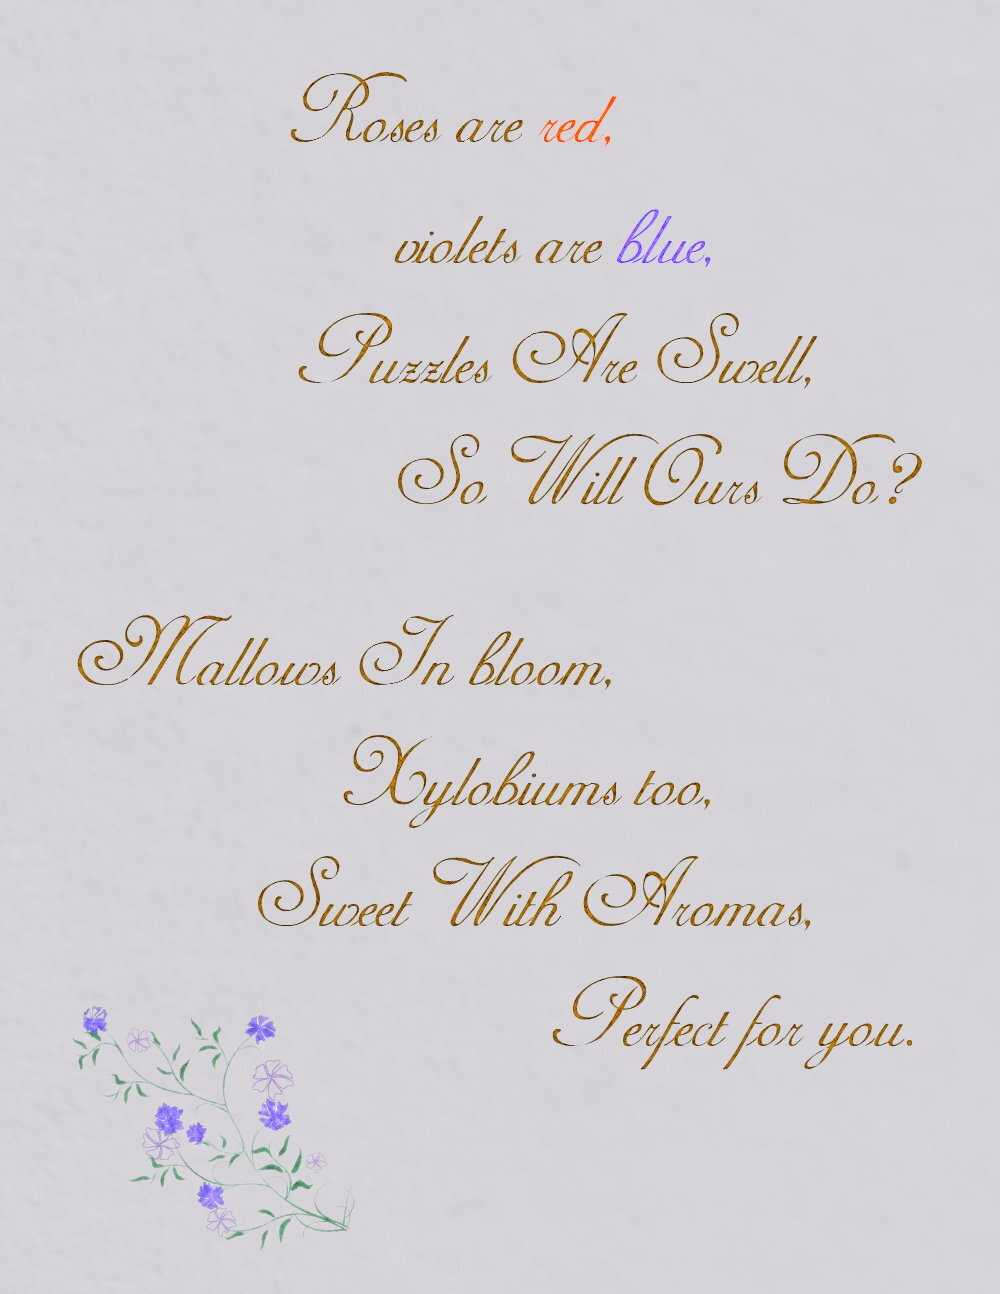 Roses are red,
violets are blue,
Puzzles Are Swell,
So Will Ours Do?
Mallows In bloom,
Xylobiums too,
Sweet With Aromas,
Perfect for you.